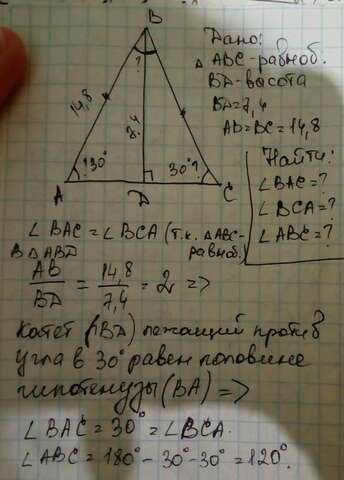 B
Дано:
Δ ABC-равноб.
BD-высота
BD=7,4
AB=BC=14,8
?
14,8
7,4
?30°
30°?
A
D
C
Найти:
∠BAC=?
∠BCA=?
∠ABC=?
∠BAC=∠BCA (т.к. ΔABC-
равноб.)
В ΔABD
AB/BD = 14,8/7,4 = 2 =>
Катет (BD) лежащий против
угла в 30° равен половине
гипотенузы (BA) =>
∠BAC=30°=∠BCA.
∠ABC=180°-30°-30°=120°.